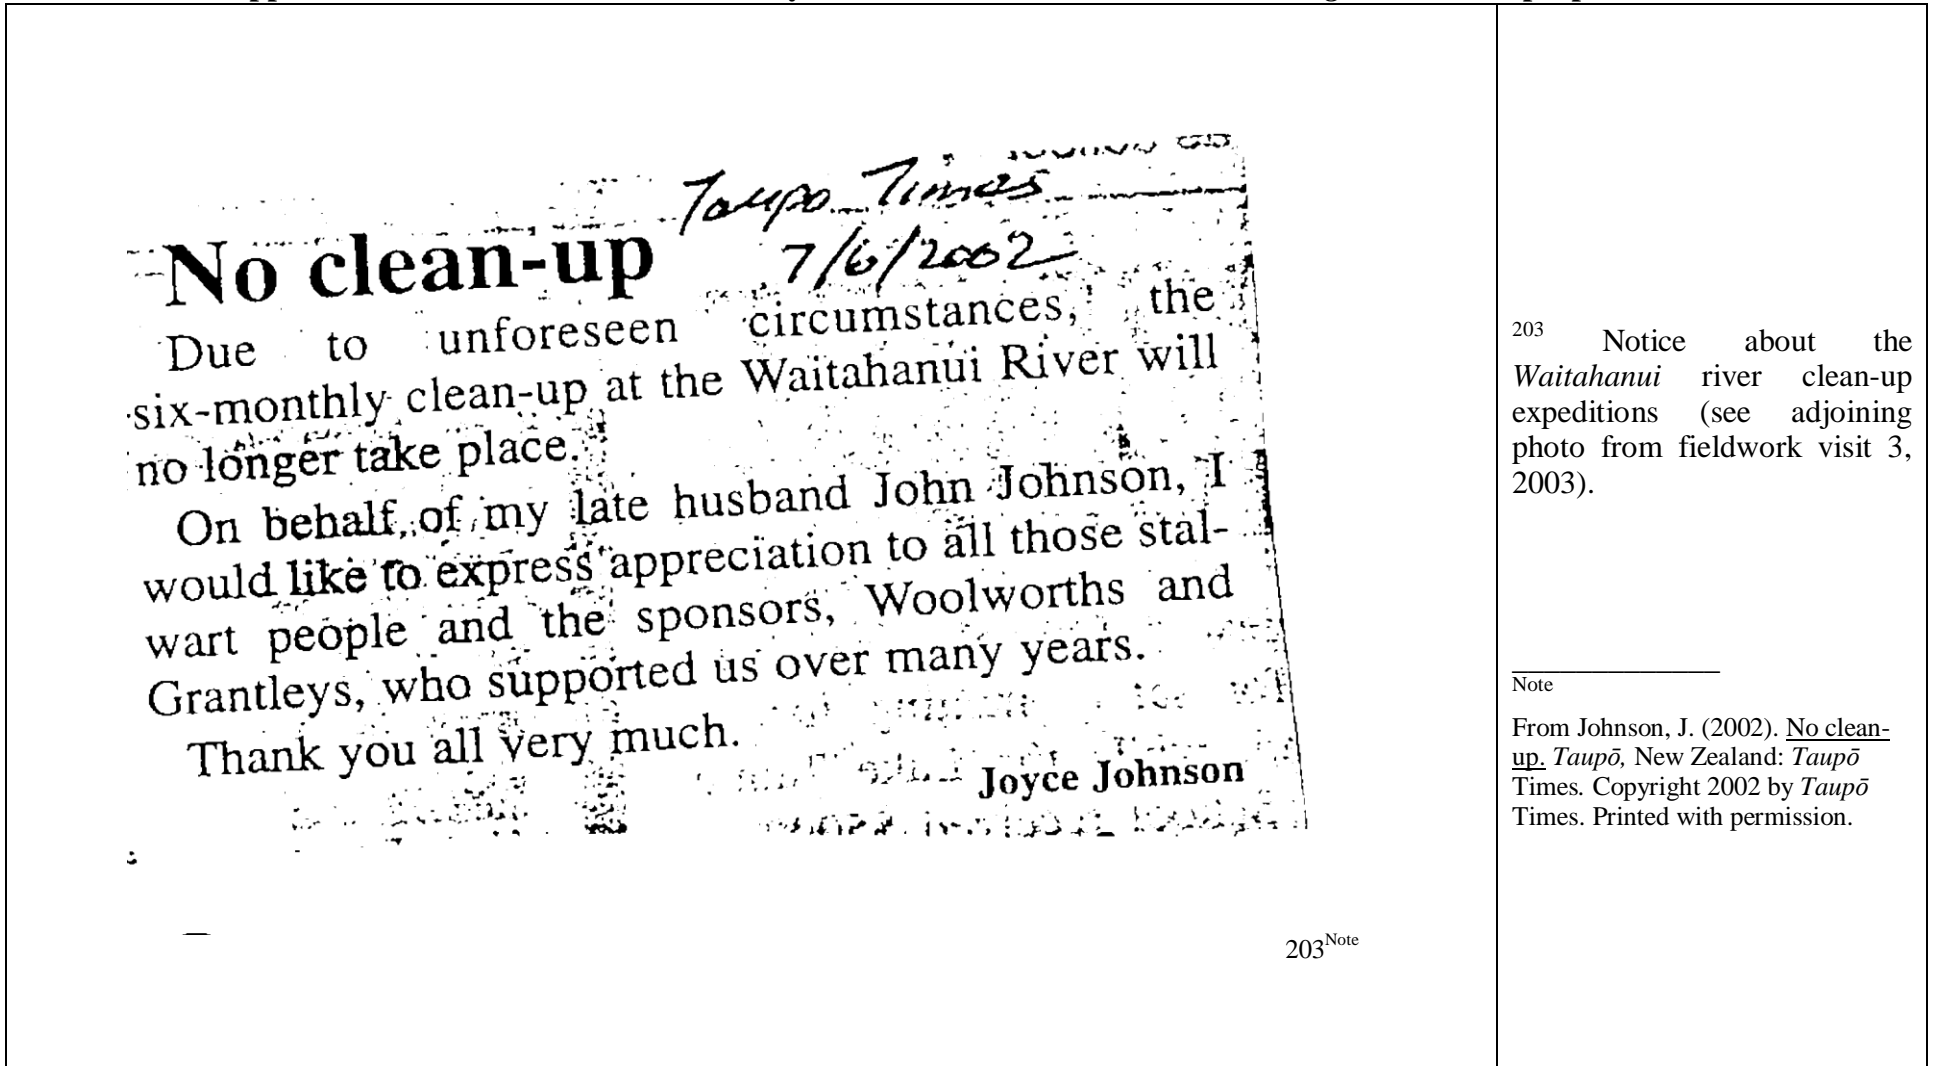 Taupo Times
7/6/2002
No clean-up
Due to unforeseen circumstances, the
six-monthly clean-up at the Waitahanui River will
no longer take place.
On behalf of my late husband John Johnson, I
would like to express appreciation to all those stal-
wart people and the sponsors, Woolworths and
Grantleys, who supported us over many years.
Thank you all very much.
Joyce Johnson
203Note
203 Notice about the
Waitahanui river clean-up
expeditions (see adjoining
photo from fieldwork visit 3,
2003).
Note
From Johnson, J. (2002). No clean-
up. Taupō, New Zealand: Taupō
Times. Copyright 2002 by Taupō
Times. Printed with permission.